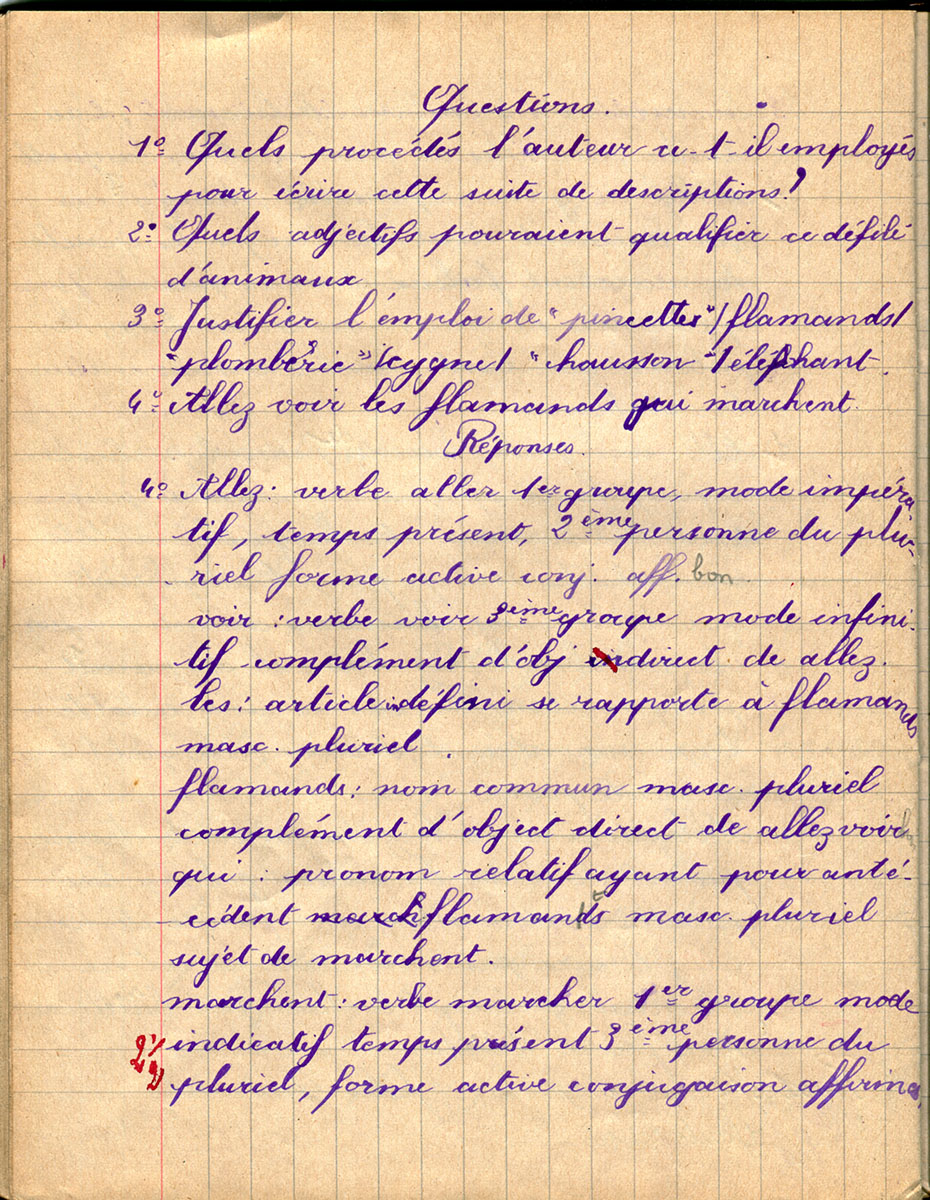 Questions.
1º Quels procédés l'auteur a-t-il employés
pour écrire cette suite de descriptions?
2º Quels adjectifs pouraient qualifier ce défilé
d'animaux
3º Justifier l'emploi de "pincettes" /flamands/
"plomberie" /cygne/ "chausson" /éléphant.
4º Allez voir les flamands qui marchent.
Réponses.
4º Allez: verbe aller 1er groupe, mode impéra
tif, temps présent, 2ème personne du plu-
riel forme active conj. aff. bon
voir : verbe voir 3ème groupe mode infini-
tif complément d'obj indirect de allez.
les: article indéfini se rapporte à flamands
masc. pluriel.
flamands: nom commun masc. pluriel
complément d'object direct de allez voir
qui : pronom relatif ayant pour anté-
cédent march flamands masc. pluriel
sujet de marchent.
marchent: verbe marcher 1er groupe mode
indicatif temps présent 3ème personne du
pluriel, forme active conjugaison affirma